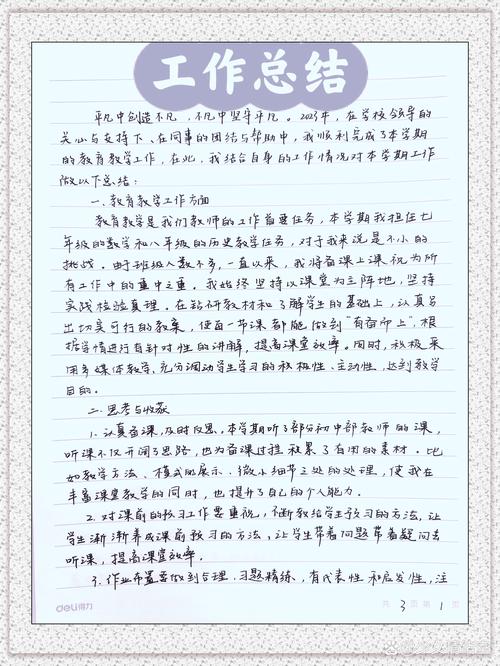 工作总结
平凡中创造不凡，不凡中坚守平凡。2023年，在学校领导的
关心与支持下、在同事的团结与帮助中，我顺利完成了本学期
的教育教学工作，在此，我结合自身的工作情况对本学期工作
做以下总结：
一、教育教学工作方面
教育教学是我们教师的工作首要任务，本学期我担任七
年级的数学和八年级的历史教学任务，对于我来说是不小的
挑战。由于班级人数不多，一直以来，我将备课上课视为所
有工作中的重中之重。我始终坚持以课堂为主阵地，坚持
实践检验真理。在钻研教材和了解学生的基础上，认真写
出切实可行的教案，使每一节课都能做到"有备而上"，根
据学情进行有针对性的讲解，提高课堂效率。同时，积极采
用多媒体教学，充分调动学生学习的积极性、主动性，达到教学
目的。
二、思考与收获
1、认真备课，及时反思。本学期听了部分初中部教师的课，
听课不仅开阔了思路，也为备课过程积累了有用的素材。比
如教学方法、模式的展示、微小细节之处的处理，使我在
丰富课堂教学的同时，也提升了自己的个人能力。
2、对课前的预习工作要重视，不断教给学生预习的方法，让
学生渐渐养成课前预习的方法、让学生带着问题带着疑问去
听课，提高课堂效率。
3、作业布置要做到合理、习题精练，有代表性和启发性，注
deli得力
共 3 页 第 1 页